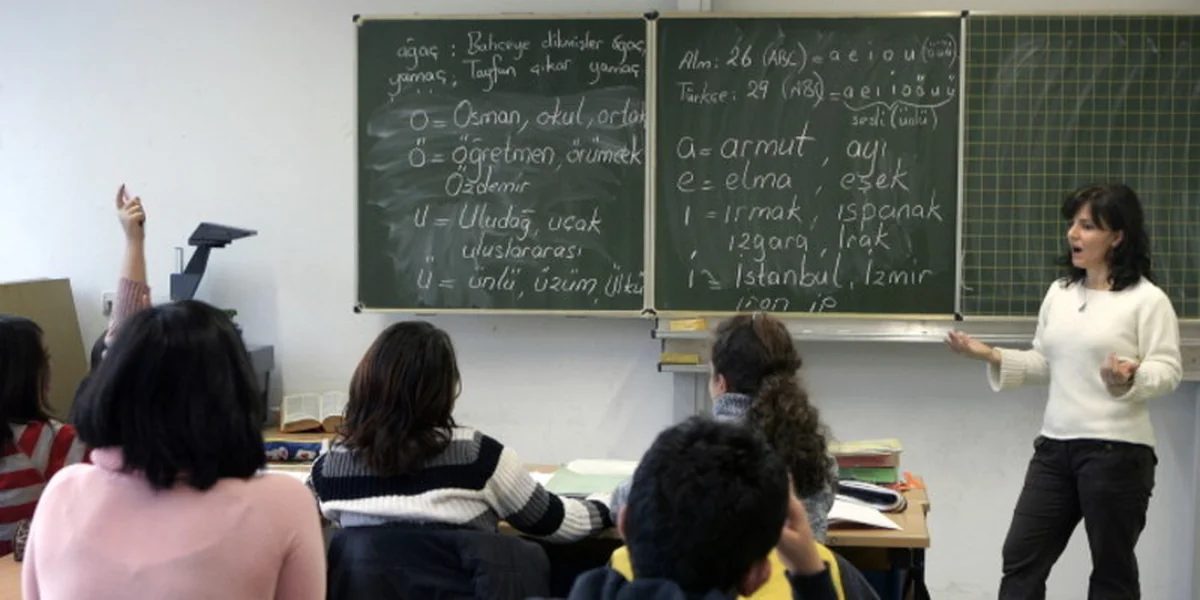 ağaç : Bahçeye dikmişler ağaç,
yamaç : Tayfun çıkar yamaç
O = Osman, okul, ortak
Ö = öğretmen, örümcek
Özdemir
U = Uludağ, uçak
uluslararası
Ü = ünlü, üzüm, Ülkü
Alm: 26 (ABC) = a e i o u (öüä)
Türkçe: 29 (ABC) = a e ı i o ö u ü
sesli (ünlü)
a = armut, ayı
e = elma, eşek
ı = ırmak, ıspanak
ızgara, Irak
i = İstanbul, İzmir
iran, ip